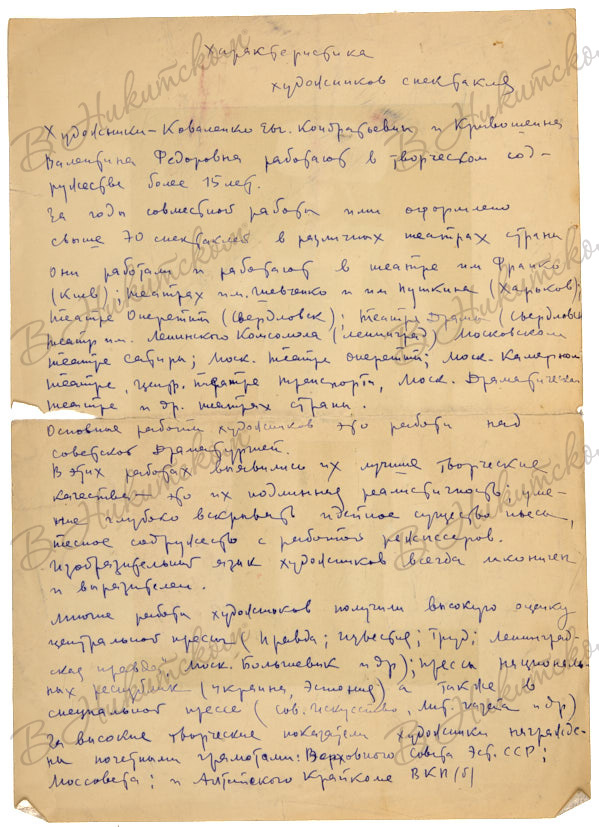 Характеристика
художников спектакля
Художники – Коваленко Евг. Кондратьевич и Кривошеина
Валентина Федоровна работают в творческом сод-
ружестве более 15 лет.
За годы совместной работы ими оформлено
свыше 70 спектаклей в различных театрах страны
Они работали и работают в театре им Франко
(Киев); театрах им. Шевченко и им Пушкина (Харьков);
Театре Оперетты (Свердловск); Театре Драмы (Свердловск
Театр им. Ленинского Комсомола (Ленинград) Московском
театре сатиры; Моск. театре оперетты; Моск. Камерном
театре, Центр. театре транспорта, Моск. Драматическом
театре и др. театрах страны.
Основные работы художников это работы над
советской Драматургией.
В этих работах выявились их лучшие творческие
качества – это их подлинная реалистичность; уме-
ние глубоко вскрывать идейное существо пьесы,
тесное содружество с работой режиссеров.
Изобразительный язык художников всегда лаконичен
и выразителен.
Многие работы художников получили высокую оценку
центральной прессы (Правда; Известия; Труд; Ленинград-
ская правда, Моск. Большевик и др); прессы националь-
ных республик (Украина, Эстония) а также в
специальной прессе (Сов. Искусство, Лит. газета и др)
За высокие творческие показатели художники награжде-
ны почетными грамотами: Верховного Совета Эст. ССР;
Моссовета; и Алтайского Крайкома ВКП(б)
В Никитском